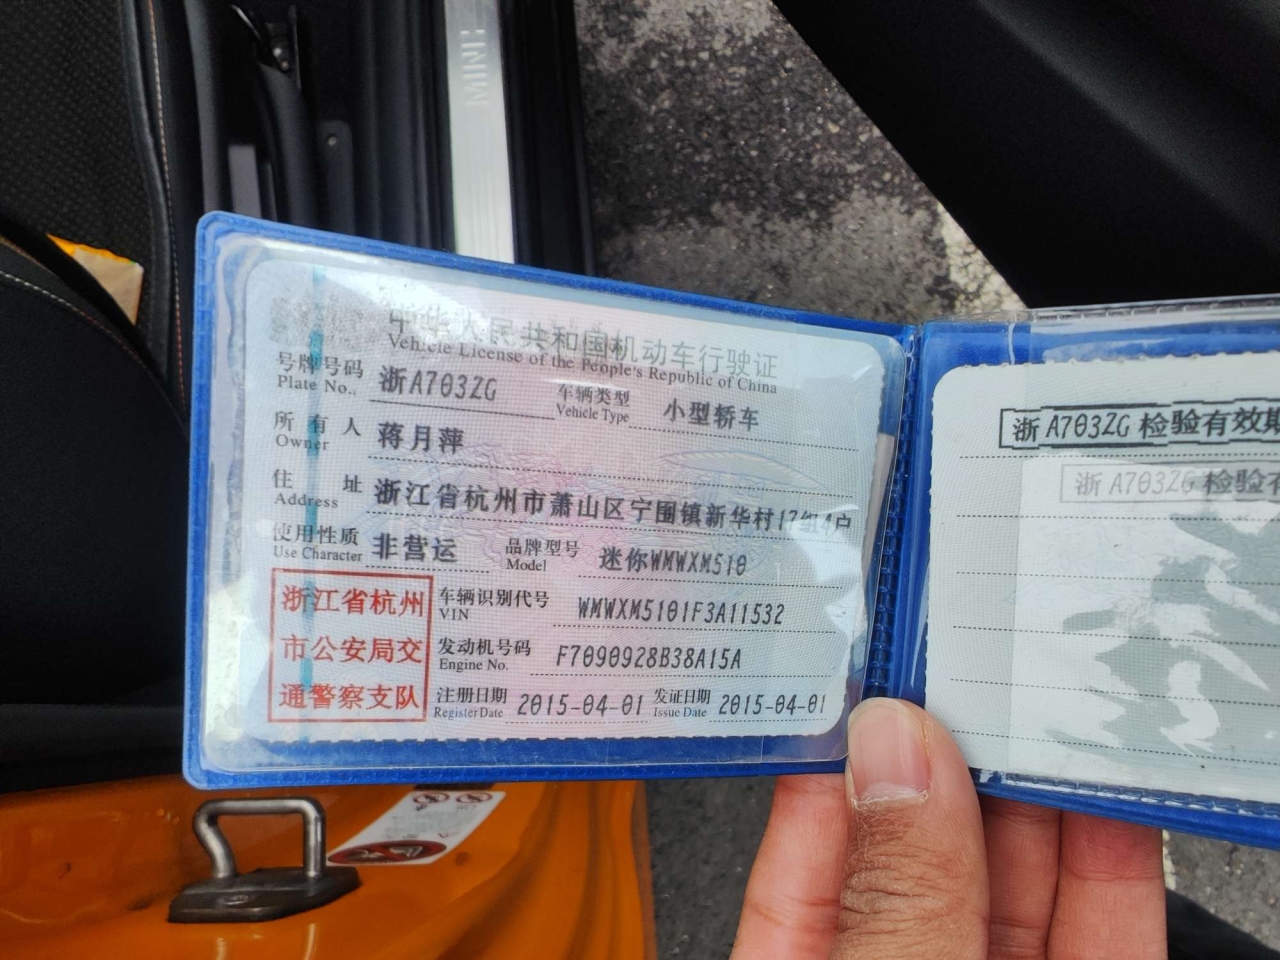 MINI
中华人民共和国机动车行驶证
Vehicle License of the People's Republic of China
号牌号码 浙A703ZG 车辆类型 小型轿车
Plate No.. Vehicle Type
所有人 蒋月萍
Owner
住址 浙江省杭州市萧山区宁围镇新华村17组4户
Address
使用性质 非营运 品牌型号 迷你WMWXM510
Use Character Model
浙江省杭州
市公安局交
通警察支队
车辆识别代号 WMWXM5101F3A11532
VIN
发动机号码 F7090928B38A15A
Engine No.
注册日期 2015-04-01 发证日期 2015-04-01
Register Date Issue Date
浙A703ZG 检验有效期
浙A703ZG 检验有